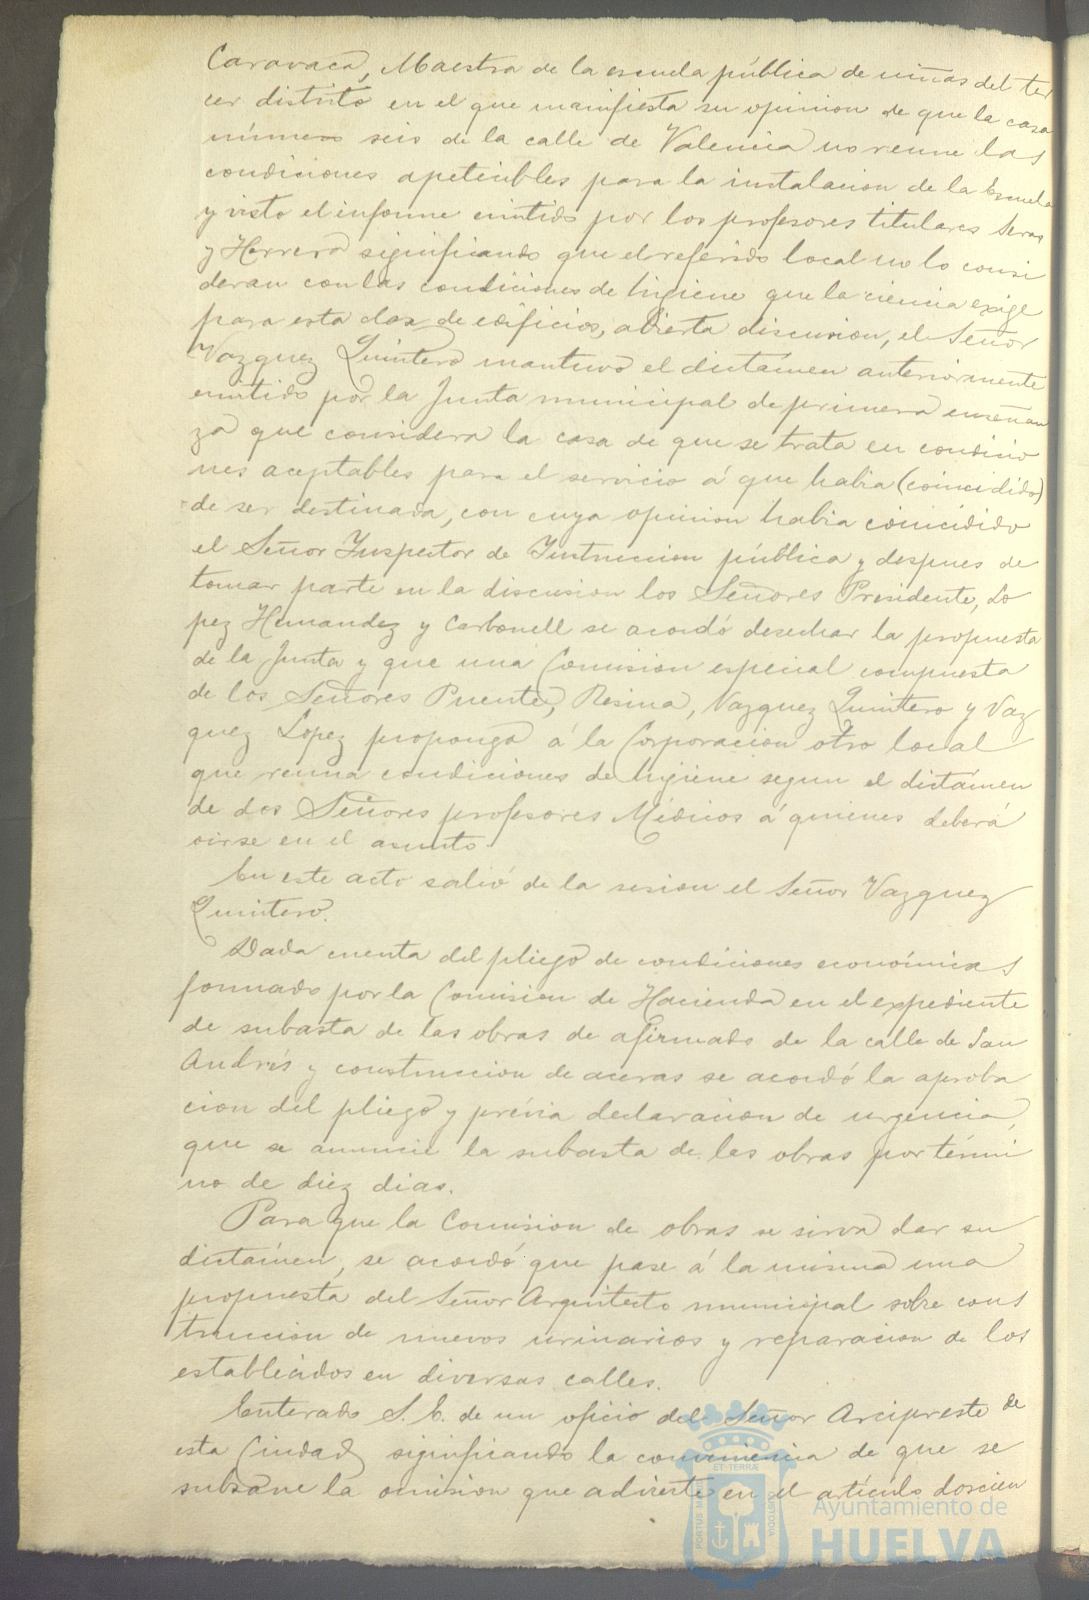 Caravaca, Maestra de la escuela pública de niñas del ter
cer distrito en el que manifiesta su opinion de que la casa
número seis de la calle de Valencia no reune las
condiciones apetecibles para la instalacion de la Escuela
y visto el informe emitido por los profesores titulares Seras
y Herrera significando que el referido local no lo consi
deran con las condiciones de higiene que la ciencia exige
para esta clase de edificios, abierta discusion, el Señor
Vazquez Quintero mantuvo el dictámen anteriormente
emitido por la Junta municipal de primera enseñan
za que considera la casa de que se trata en condicio
nes aceptables para el servicio á que habia (coincidido)
de ser destinada, con cuya opinion habia coincidido
el Señor Inspector de Instruccion pública y despues de
tomar parte en la discusion los Señores Presidente, Lo
pez Hernandez y Carbonell se acordó desechar la propuesta
de la Junta y que una Comision especial compuesta
de los Señores Puente, Resina, Vazquez Quintero y Vaz
quez Lopez proponga á la Corporacion otro local
que reuna condiciones de higiene segun el dictámen
de dos Señores profesores Médicos á quienes deberá
oirse en el asunto.
En este acto salió de la sesion el Señor Vazquez
Quintero.
Dada cuenta del pliego de condiciones económicas
formado por la Comision de Hacienda en el expediente
de subasta de las obras de afirmado de la calle de San
Andrés y construccion de aceras se acordó la aproba
cion del pliego y prévia declaracion de urgencia,
que se anuncie la subasta de las obras por térmi
no de diez dias.
Para que la Comision de obras se sirva dar su
dictámen, se acordó que pase á la misma una
propuesta del Señor Arquitecto municipal sobre cons
truccion de nuevos urinarios y reparacion de los
establecidos en diversas calles.
Enterado S. E. de un oficio del Señor Arcipreste de
esta Ciudad significando la conveniencia de que se
subsane la omision que advierte en el artículo doscien
PORTUS MARIS ET TERRÆ CUSTODIA
Ayuntamiento de
HUELVA